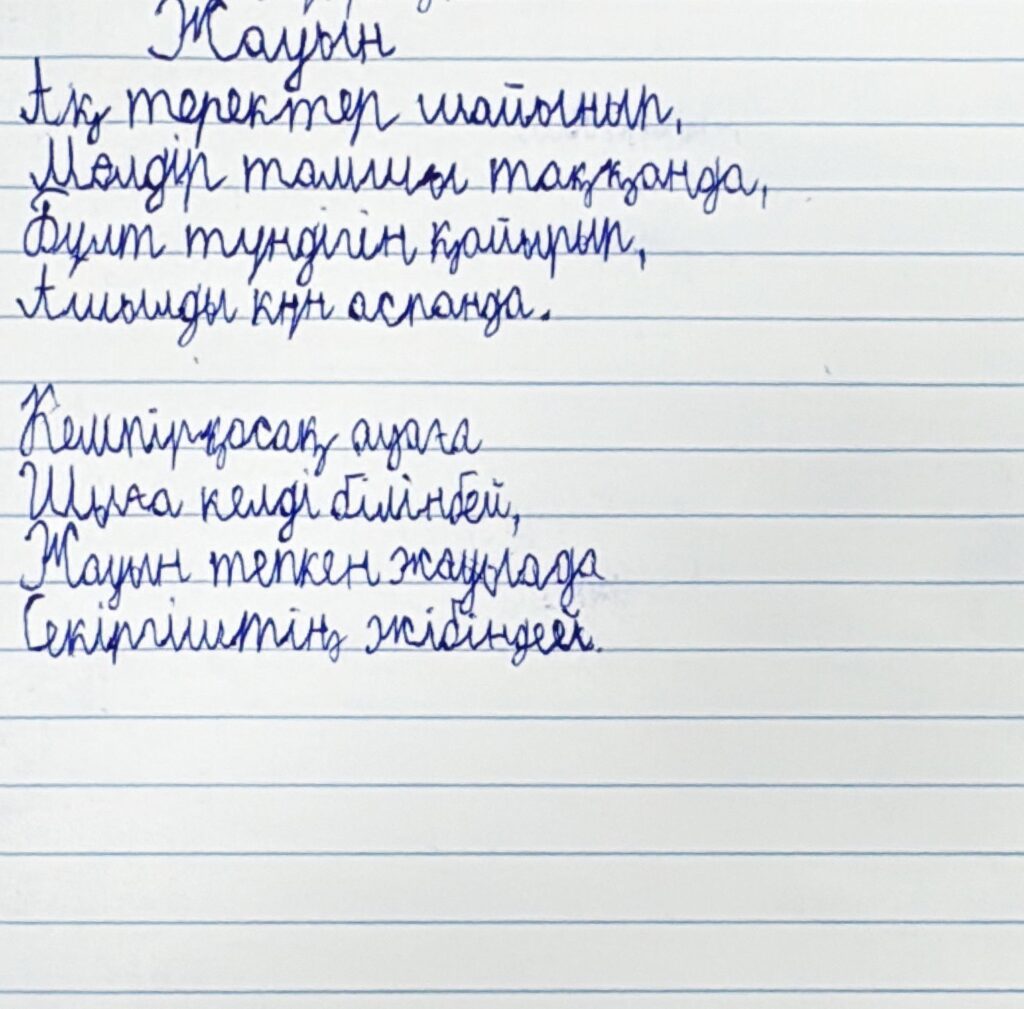 Жауын
Ақ теректер шайынып,
Мөлдір тамшы таққанда,
Бұлт түндігін қайырып,
Ашылды күн аспанда.
Кемпірқосақ ауаға
Шыға келді білінбей,
Жауын тепкен жауғада
Секіргіштің жібіндей.